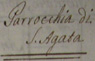 Parrocchia di
S. Agata